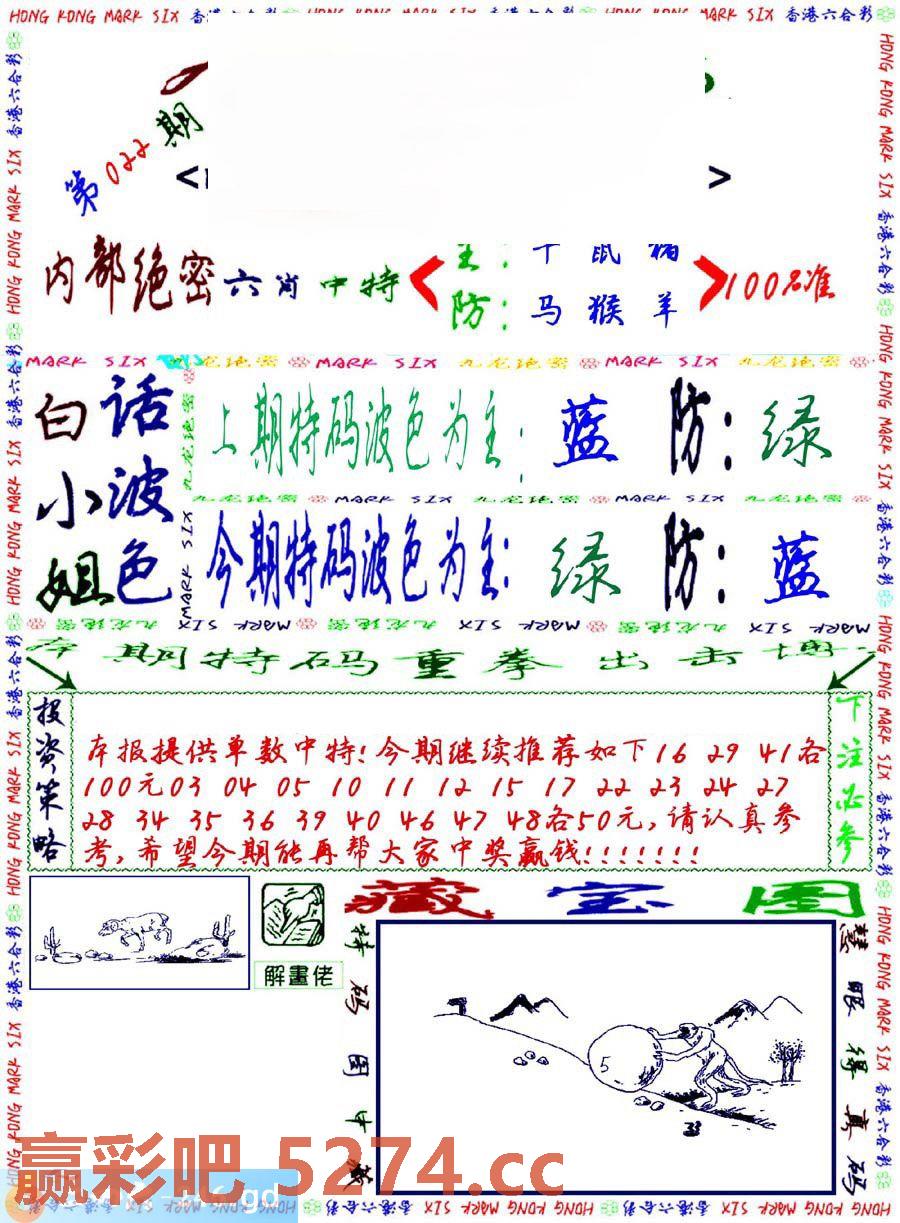 HONG KONG MARK SIX 香港六合彩
第022期
内部绝密六肖中特
主：牛鼠猪
防：马猴羊
100名准
MARK SIX 九龙绝密 MARK SIX 九龙绝密 MARK SIX 九龙绝密
白话
小波
姐色
上期特码波色为主：蓝 防：绿
九龙绝密 MARK SIX 九龙绝密 MARK SIX 九龙绝密
今期特码波色为主：绿 防：蓝
期特码重拳出击
投资策略
本报提供单数中特！今期继续推荐如下16 29 41各
100元03 04 05 10 11 12 15 17 22 23 24 27
28 34 35 36 39 40 46 47 48各50元，请认真参
考，希望今期能再帮大家中奖赢钱！！！！！！！
下注必参
藏宝图
解畫佬
特码图中藏
慧眼得真码
5
33
赢彩吧 5274.cc
gd